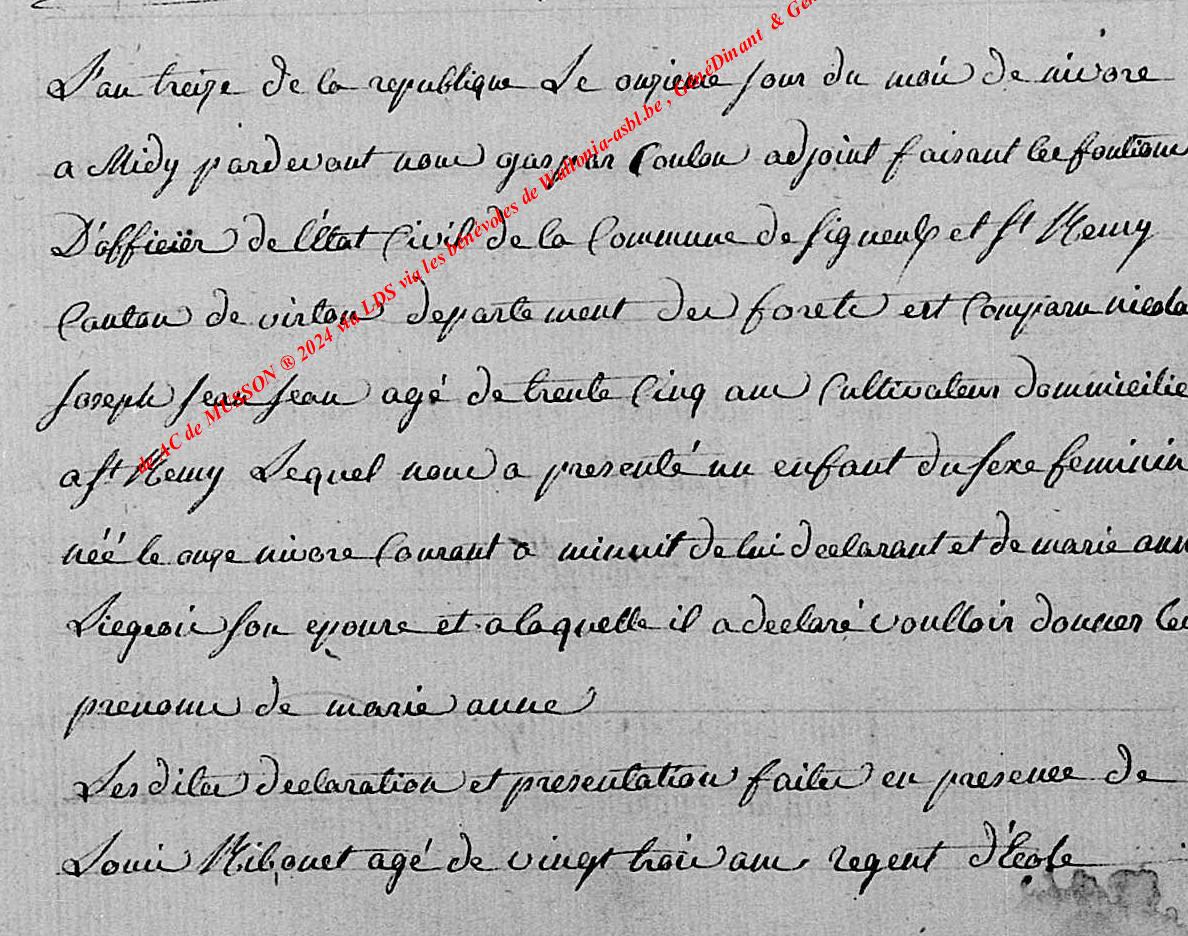 L'an treize de la republique Le onzieme jour du mois de nivose
a Midy pardevant nous gaspar Coulon adjoint faisant les fontions
D'officier de l'Etat Civil de la Commune de Signeulx et St Remy
Canton de virton departement des forets est Comparu nicola
Joseph Jean Jean agé de trente Cinq ans Cultivateur domicilié
a St Remy Lequel nous a presenté un enfant du sexe feminin
néé le onze nivose Courant a minuit de lui declarant et de marie ann
Liegeois son epouse et a laquelle il a declaré voulloir donner les
prenoms de marie anne
Les dites declaration et presentation faites en presence de
Louis Ribonet agé de vingt trois ans regent d'Ecole
de 4C de MUSSON ® 2024 via LDS via les bénévoles de Wallonia-asbl.be , GénéDinant & Gén